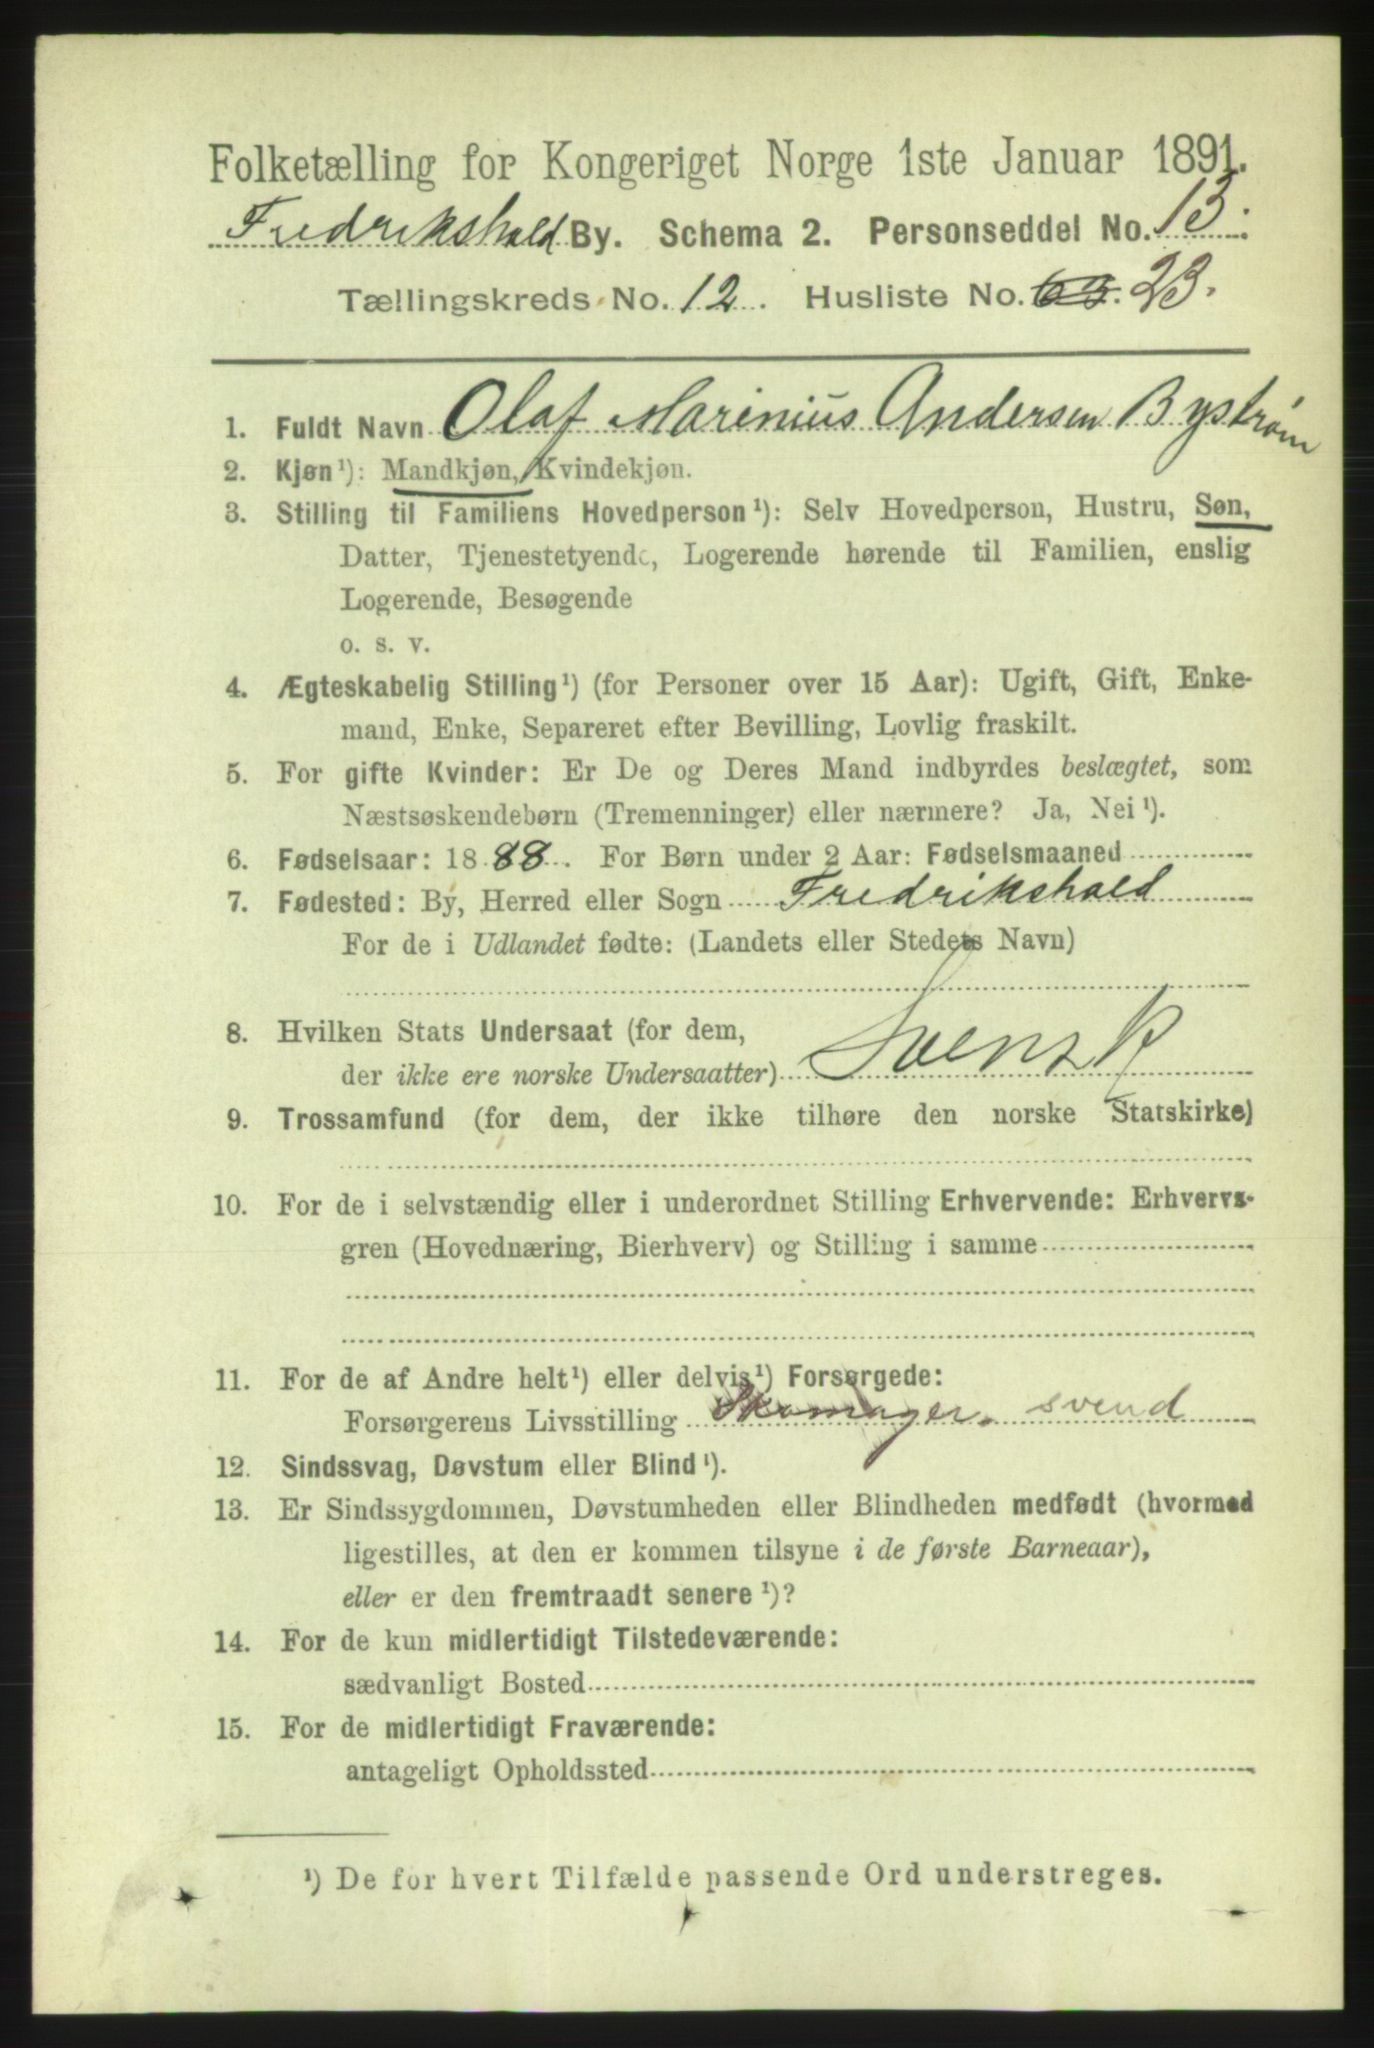 Folketælling for Kongeriget Norge 1ste Januar 1891.
Fredrikshald By. Schema 2. Personseddel No. 13.
Tællingskreds No. 12. Husliste No. 63. 23.
1. Fuldt Navn Olaf Marinius Andersen Bystrøm
2. Kjøn¹): Mandkjøn, Kvindekjøn.
3. Stilling til Familiens Hovedperson¹): Selv Hovedperson, Hustru, Søn,
Datter, Tjenestetyende, Logerende hørende til Familien, enslig
Logerende, Besøgende
o. s. v.
4. Ægteskabelig Stilling¹) (for Personer over 15 Aar): Ugift, Gift, Enke-
mand, Enke, Separeret efter Bevilling, Lovlig fraskilt.
5. For gifte Kvinder: Er De og Deres Mand indbyrdes beslægtet, som
Næstsøskendebørn (Tremenninger) eller nærmere? Ja, Nei¹).
6. Fødselsaar: 1888. For Børn under 2 Aar: Fødselsmaaned
7. Fødested: By, Herred eller Sogn Fredrikshald
For de i Udlandet fødte: (Landets eller Stedets Navn)
8. Hvilken Stats Undersaat (for dem,
der ikke ere norske Undersaatter) Svensk
9. Trossamfund (for dem, der ikke tilhøre den norske Statskirke)
10. For de i selvstændig eller i underordnet Stilling Erhvervende: Erhvervs-
gren (Hovednæring, Bierhverv) og Stilling i samme
11. For de af Andre helt¹) eller delvis¹) Forsørgede:
Forsørgerens Livsstilling Skomager. svend
12. Sindssvag, Døvstum eller Blind¹).
13. Er Sindssygdommen, Døvstumheden eller Blindheden medfødt (hvormed
ligestilles, at den er kommen tilsyne i de første Barneaar),
eller er den fremtraadt senere¹)?
14. For de kun midlertidigt Tilstedeværende:
sædvanligt Bosted
15. For de midlertidigt Fraværende:
antageligt Opholdssted
¹) De for hvert Tilfælde passende Ord understreges.